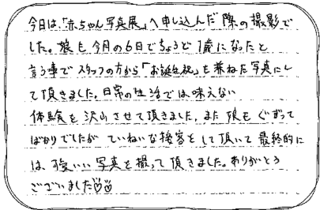 今日は、「赤ちゃん写真展」へ申し込んだ際の撮影で
した。娘も今月の6日でちょうど1歳になったと
言う事でスタッフの方から「お誕生祝」を兼ねた写真にし
て頂きました。日常の生活では味えない
体験を沢山させて頂きました。また娘もぐずって
ばかりでしたがていねいな接客をして頂いて最終的に
は、強いいい写真を撮って頂きました。ありがとう
ございました